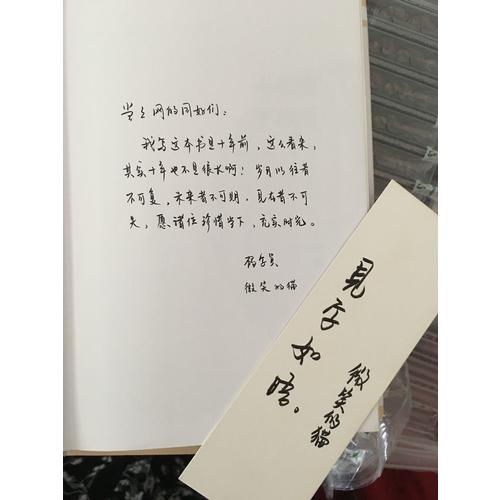 当当网的同好们：
我写这本书是十年前，这么看来，
其实十年也不是很长啊！岁月以往者
不可复，未来者不可期，见在者不可
失，愿诸位珍惜当下，充实时光。
码字员
微笑的猫
見字如晤。
微笑的猫